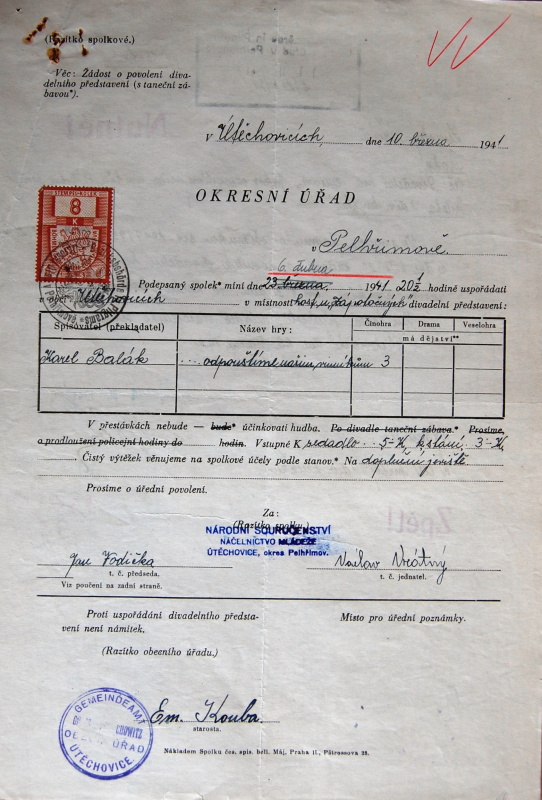 (Razítko spolkové.)
Věc: Žádost o povolení diva-
delního představení (s taneční zá-
bavou*).
v Útěchovicích, dne 10. března 1941
OKRESNÍ ÚŘAD
v Pelhřimově.
6. dubna
Podepsaný spolek* míní dne 23. března 1941 20½ hodině uspořádati
Útěchovicích v místnosti host. „Zápotočných" divadelní představení:
Spisovatel (překladatel) Název hry: Činohra Drama Veselohra
má dějství**
Karel Balák ...odpouštíme našim viníkům 3
V přestávkách nebude — bude* účinkovati hudba. Po divadle taneční zábava.* Prosíme,
o prodloužení policejní hodiny do hodin. Vstupné K sedadlo 5-K, k stání 3-K.
Čistý výtěžek věnujeme na spolkové účely podle stanov.* Na doplnění jeviště.
Prosíme o úřední povolení.
Za:
(Razítko spolku.)
NÁRODNÍ SOURUČENSTVÍ
NÁČELNICTVO MLÁDEŽE
ÚTĚCHOVICE, okres Pelhřimov.
Jan Vodička Václav Vrátný
t. č. předseda. t. č. jednatel.
Viz poučení na zadní straně.
Proti uspořádání divadelního předsta-
vení není námitek.
Místo pro úřední poznámky.
(Razítko obecního úřadu.)
GEMEINDEAMT
OBECNÍ ÚŘAD
ÚTĚCHOVICE.
Em. Kouba
starosta.
Nákladem Spolku čes. spis. bell. Máj, Praha II., Pštrossova 28.
8
K